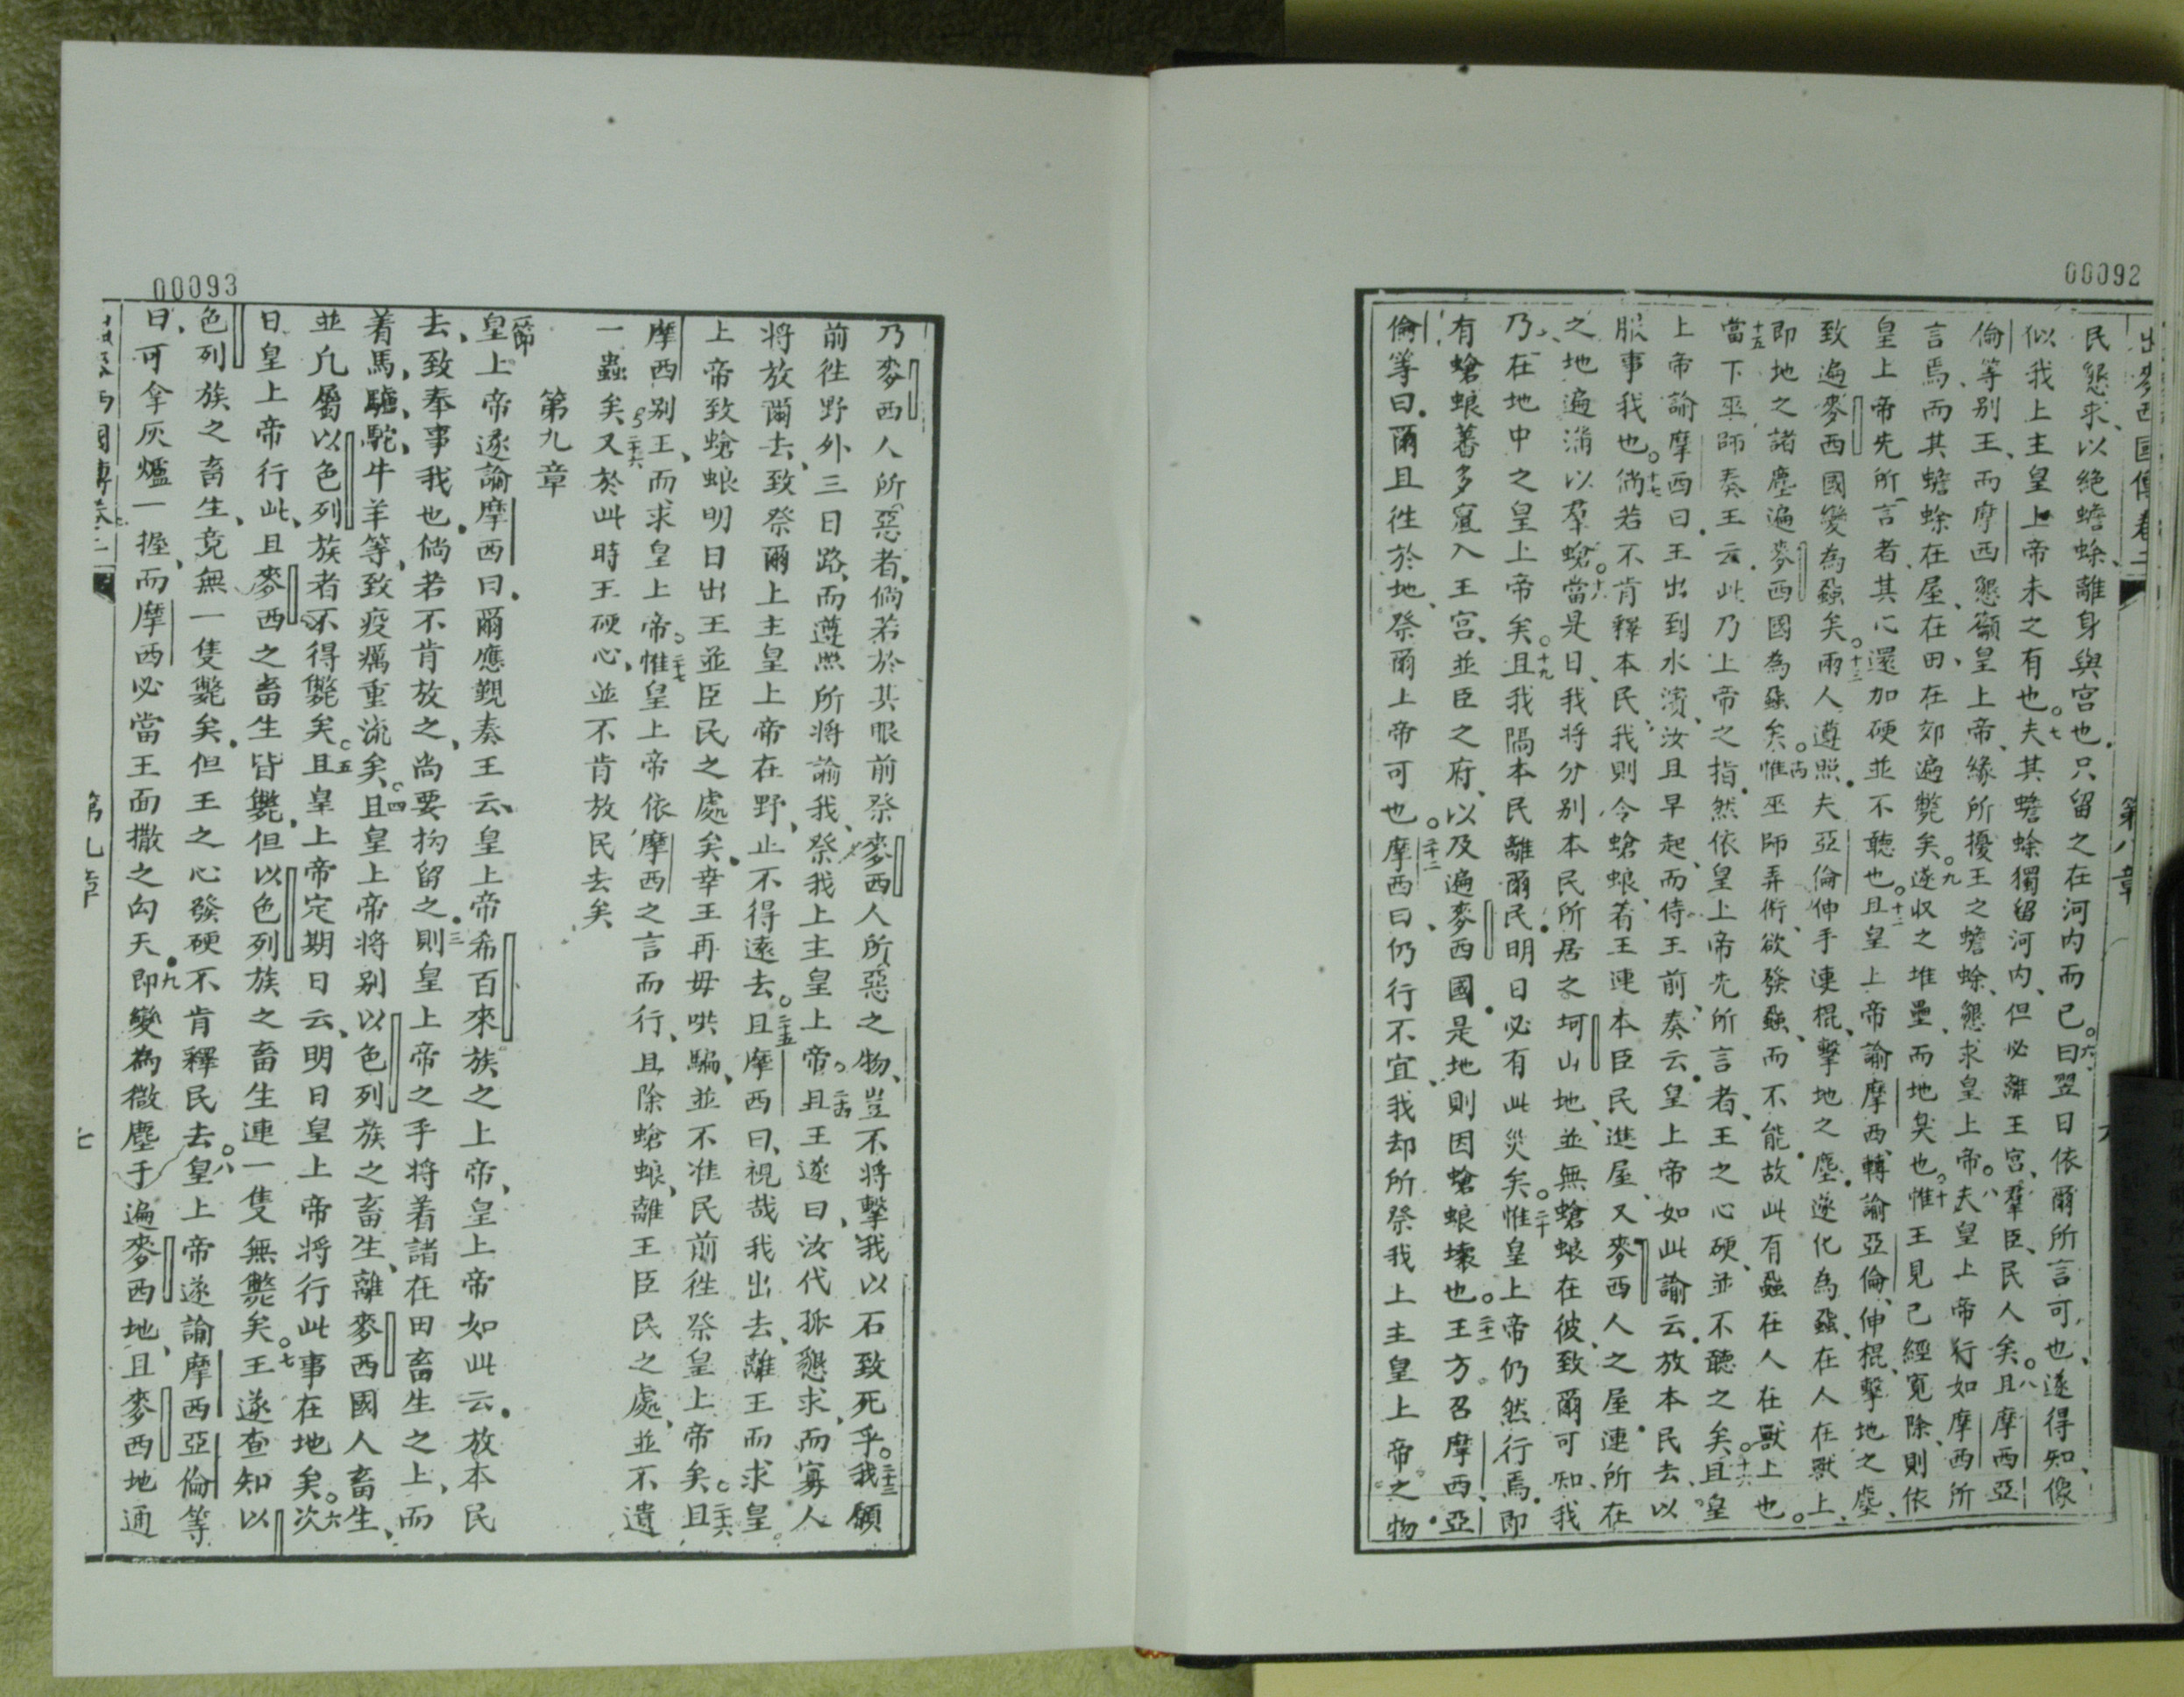 00092
出麥西國傳卷二 第八章 六
民懇求、以絕蟾蜍、離身與宮也、只留之在河內而已。六曰翌日依爾所言可也、遂得知、像
似我上主皇上帝未之有也。七夫其蟾蜍獨留河內、但必離王宮、羣臣、民人矣。八且摩西亞
倫等別王、而摩西懇籲皇上帝、緣所擾王之蟾蜍、懇求皇上帝。八夫皇上帝行如摩西所
言焉、而其蟾蜍在屋、在田、在郊遍斃矣。九遂收之堆壘、而地臭也。十惟王見已經寬除、則依
皇上帝先所言者、其心還加硬並不聽也。十二且皇上帝諭摩西、轉諭亞倫、伸棍、擊地之塵、
致遍麥西國變為蝨矣。十三兩人遵照、夫亞倫伸手連棍、擊地之塵、遂化為蝨、在人在獸上、
即地之諸塵遍麥西國為蝨矣。惟巫師弄術、欲發蝨、而不能、故此有蝨在人在獸上也。
十五當下巫師奏王云、此乃上帝之指、然依皇上帝先所言者、王之心硬、並不聽之矣。十六且皇
上帝諭摩西曰、王出到水濱、汝且早起、而侍王前、奏云、皇上帝如此諭云、放本民去、以
服事我也。十七倘若不肯釋本民、我則令螥蜋、着王連本臣民進屋、又麥西人之屋、連所在
之地遍滿以羣螥。十八當是日、我將分別本民所居之坷山地、並無螥蜋在彼、致爾可知、我
乃在地中之皇上帝矣。十九且我隔本民離爾民、明日必有此災矣。二十惟皇上帝仍然行焉、即
有螥蜋蕃多寬入王宮、並臣之府、以及遍麥西國、是地則因螥蜋壞也。二十一王方召摩西、亞
倫等曰、爾且徃於地、祭爾上帝可也。二十二摩西曰、仍行不宜、我却所祭我上主皇上帝之物
00093
乃麥西人所惡者、倘若於其眼前祭麥西人所惡之物、豈不將擊我以石致死乎。二十三我願
前徃野外三日路、而遵照所將諭我、祭我上主皇上帝。二十四且王遂曰、汝代孤懇求、而寡人
將放爾去、致祭爾上主皇上帝在野、止不得遠去。二十五且摩西曰、視哉我出去、離王而求皇
上帝致螥蜋明日出王並臣民之處矣、幸王再毋哄騙、並不准民前徃祭皇上帝矣。二十六且
摩西別王、而求皇上帝。二十七惟皇上帝依摩西之言而行、且除螥蜋、離王臣民之處、並不遺
一蟲矣、二十六又於此時王硬心、並不肯放民去矣
第九章
一節皇上帝遂諭摩西曰、爾應覲奏王云、皇上帝希百來族之上帝、皇上帝如此云、放本民
去、致奉事我也、倘若不肯放之、尚要拘留之、三則皇上帝之手將着諸在田畜生之上、而
着馬、驢、駝、牛羊等、致疫癘重流矣。四且皇上帝將別以色列族之畜生、離麥西國人畜生、
並凡屬以色列族者、不得斃矣。五且皇上帝定期日云、明日皇上帝將行此事在地矣。六次
日皇上帝行此、且麥西之畜生皆斃、但以色列族之畜生連一隻無斃矣。七王遂查知以
色列族之畜生、竟無一隻斃矣、但王之心發硬不肯釋民去。八皇上帝遂諭摩西亞倫等
曰、可拿灰爐一握、而摩西必當王面撒之向天、九即變為微塵于遍麥西地、且麥西地通
第九章 七